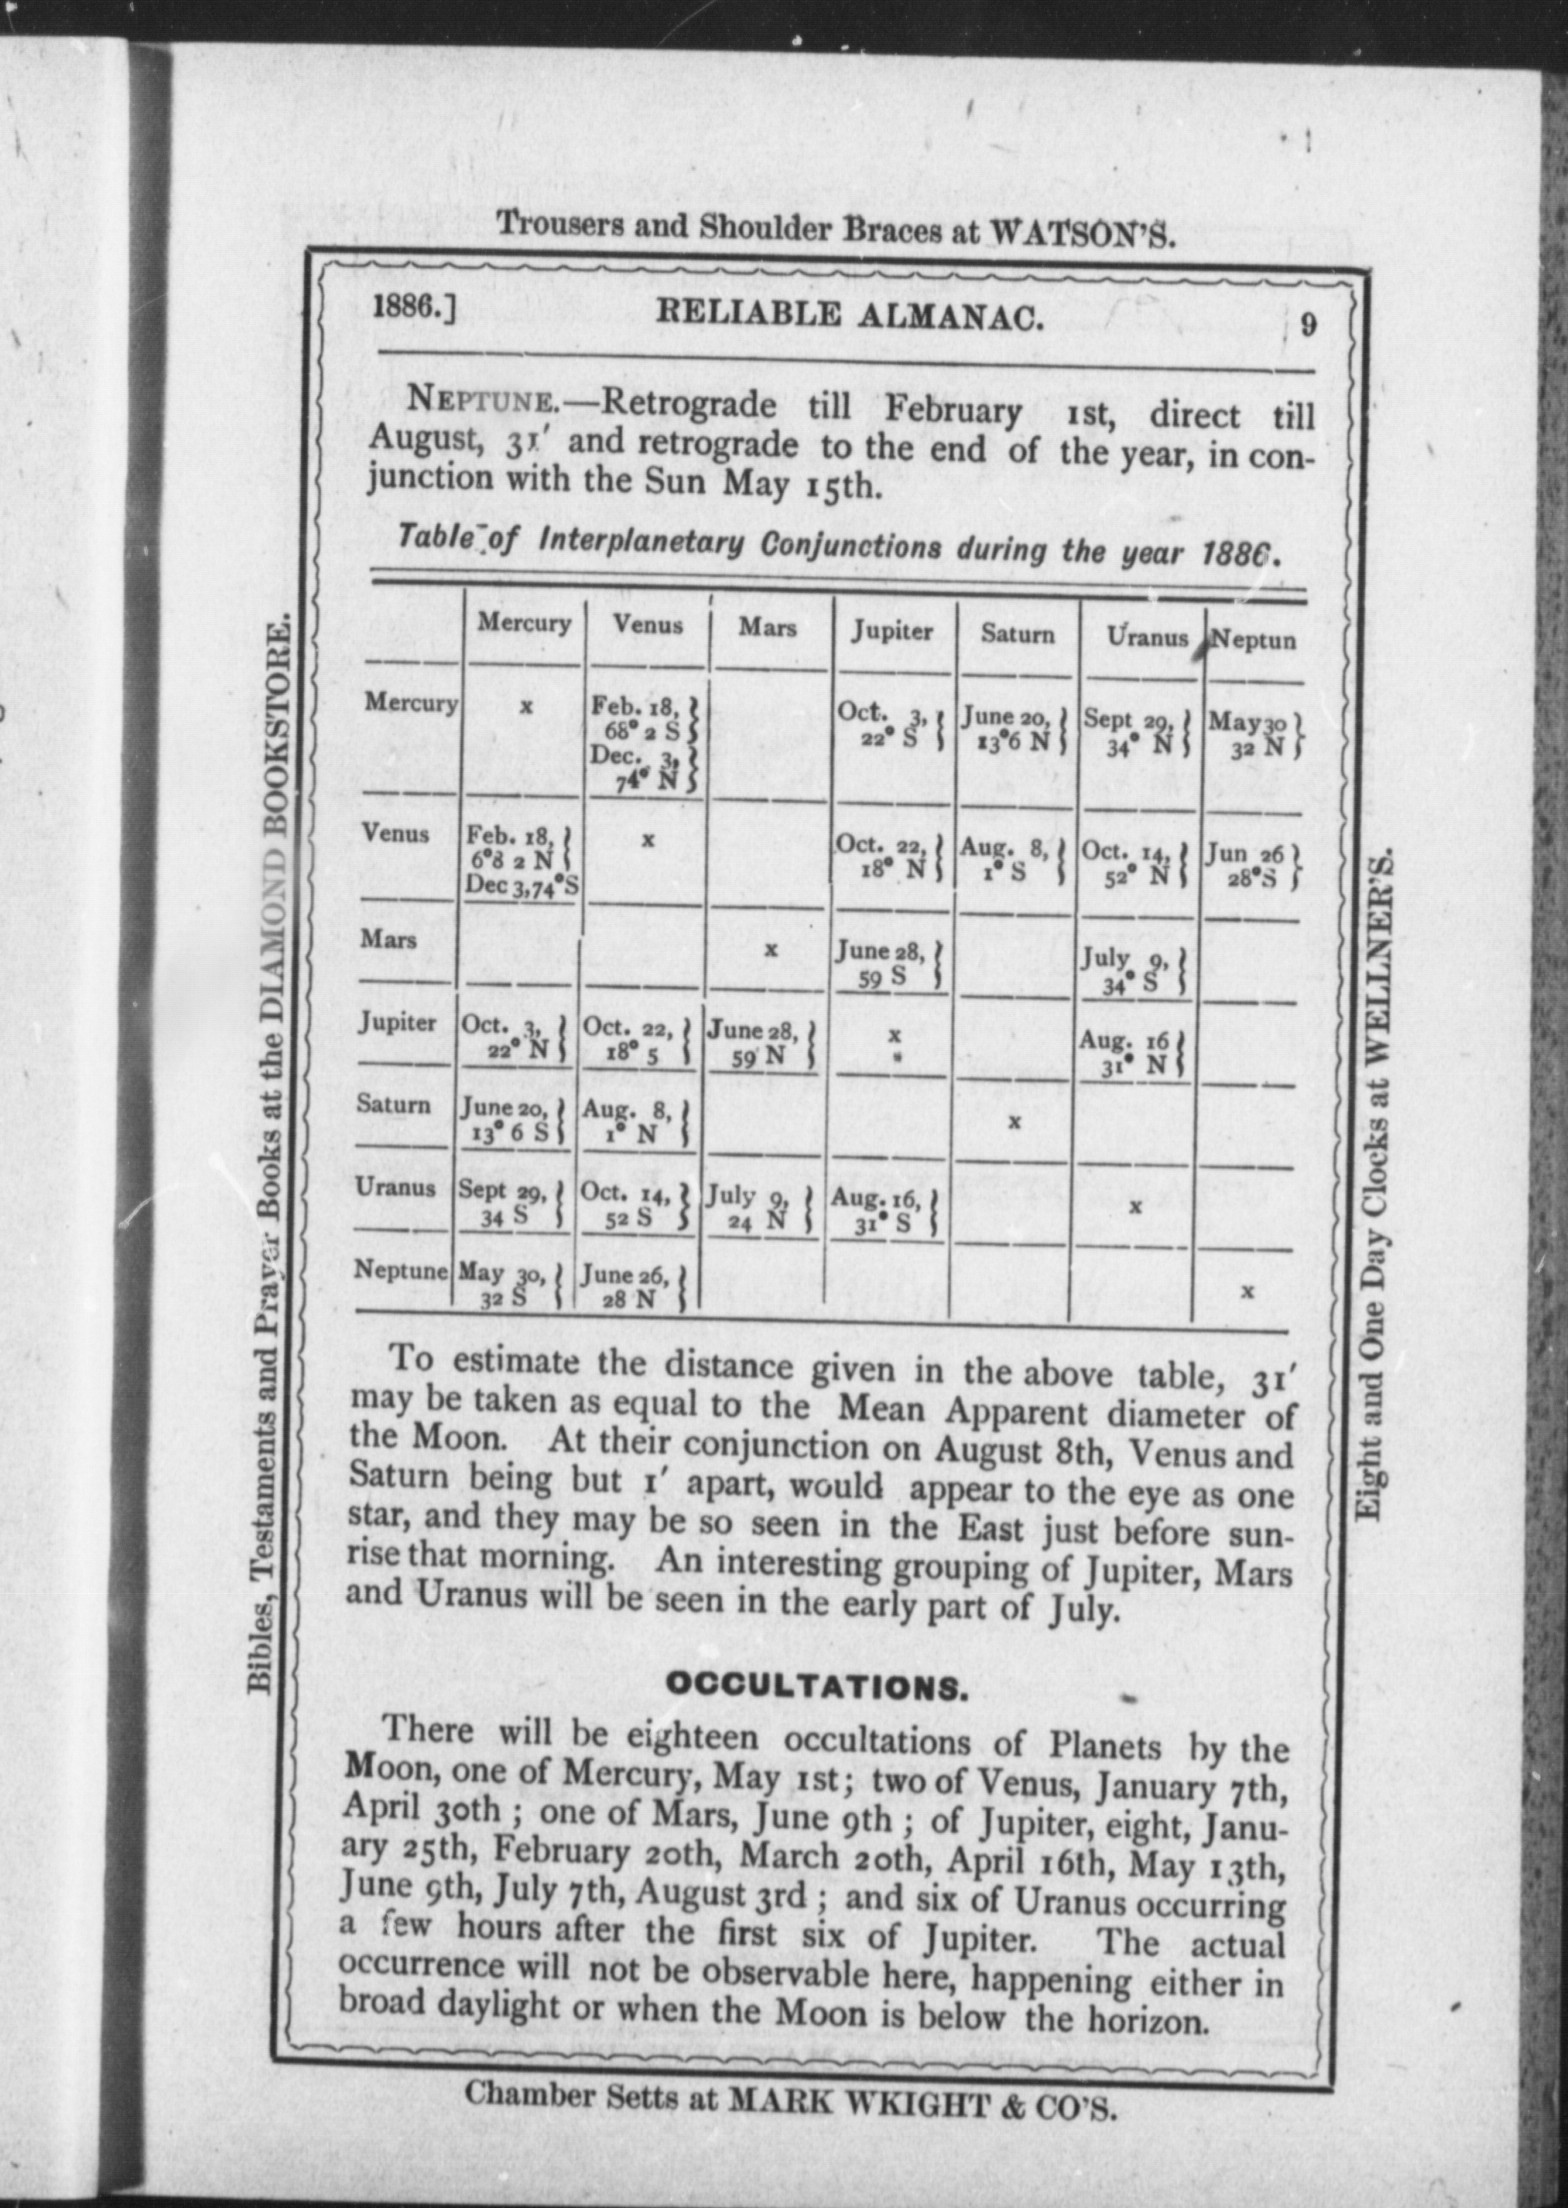 Trousers and Shoulder Braces at WATSON'S.
1886.] RELIABLE ALMANAC. 9
NEPTUNE.—Retrograde till February 1st, direct till
August, 31′ and retrograde to the end of the year, in con-
junction with the Sun May 15th.
Table of Interplanetary Conjunctions during the year 1886.
Mercury Venus Mars Jupiter Saturn Uranus Neptun
Mercury x Feb. 18, Oct. 3, June 20, Sept 29, May 30
68° 2 S 22° S 13°6 N 34° N 32 N
Dec. 3,
74° N
Venus Feb. 18, x Oct. 22, Aug. 8, Oct. 14, Jun 26
6°8 2 N 18° N 1° S 52° N 28°S
Dec 3,74°S
Mars x June 28, July 9,
59 S 34° S
Jupiter Oct. 3, Oct. 22, June 28, x Aug. 16
22° N 18° 5 59 N 31° N
Saturn June 20, Aug. 8, x
13° 6 S 1° N
Uranus Sept 29, Oct. 14, July 9, Aug. 16, x
34 S 52 S 24 N 31° S
Neptune May 30, June 26, x
32 S 28 N
To estimate the distance given in the above table, 31′
may be taken as equal to the Mean Apparent diameter of
the Moon. At their conjunction on August 8th, Venus and
Saturn being but 1′ apart, would appear to the eye as one
star, and they may be so seen in the East just before sun-
rise that morning. An interesting grouping of Jupiter, Mars
and Uranus will be seen in the early part of July.
OCCULTATIONS.
There will be eighteen occultations of Planets by the
Moon, one of Mercury, May 1st; two of Venus, January 7th,
April 30th ; one of Mars, June 9th ; of Jupiter, eight, Janu-
ary 25th, February 20th, March 20th, April 16th, May 13th,
June 9th, July 7th, August 3rd ; and six of Uranus occurring
a few hours after the first six of Jupiter. The actual
occurrence will not be observable here, happening either in
broad daylight or when the Moon is below the horizon.
Chamber Setts at MARK WKIGHT & CO'S.
Bibles, Testaments and Prayer Books at the DIAMOND BOOKSTORE.
Eight and One Day Clocks at WELLNER'S.